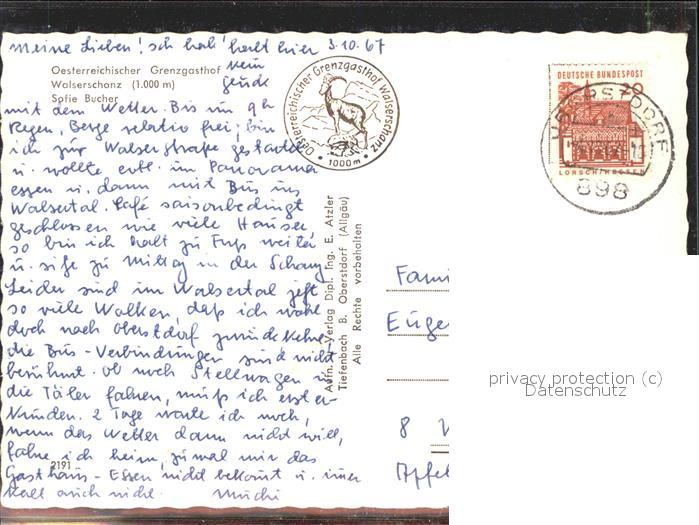 Meine Lieben! Ich hab' halt hier 3.10.67
kein
Freude
mit dem Wetter. Bis um 9h
Regen, Berge relativ frei; bin
ich zur Walserstraße gestartet
u. wollte evtl. im Panorama
essen u. dann mit Bus ins
Walsertal. Café saisonbedingt
geschlossen wie viele Häuser,
so bin ich halt zu Fuß weiter
u. sitze zu Mittag in der Schanz.
Leider sind im Walsertal jetzt
so viele Wolken, daß ich wohl
doch nach Oberstdorf zurückkehre,
die Bus-Verbindungen sind nicht
berühmt. Ob noch Stellwagen in
die Täler fahren, muß ich erst er-
kunden. 2 Tage warte ich noch,
wenn das Wetter dann nicht will,
fahre ich heim, zumal mir das
Gasthaus-Essen nicht bekommt u. immer
kalt auch nicht. Muchi
Oesterreichischer Grenzgasthof
Walserschanz (1.000 m)
Sofie Bucher
Oesterreichischer Grenzgasthof Walserschanz
• 1000 m •
DEUTSCHE BUNDESPOST
20
LORSCH/HESSEN
OBERSTDORF
898
Aufn. u. Verlag Dipl. Ing. E. Atzler
Tiefenbach B. Oberstdorf (Allgäu)
Alle Rechte vorbehalten
2191
Fami
Euge
8
Apfel
privacy protection (c)
Datenschutz